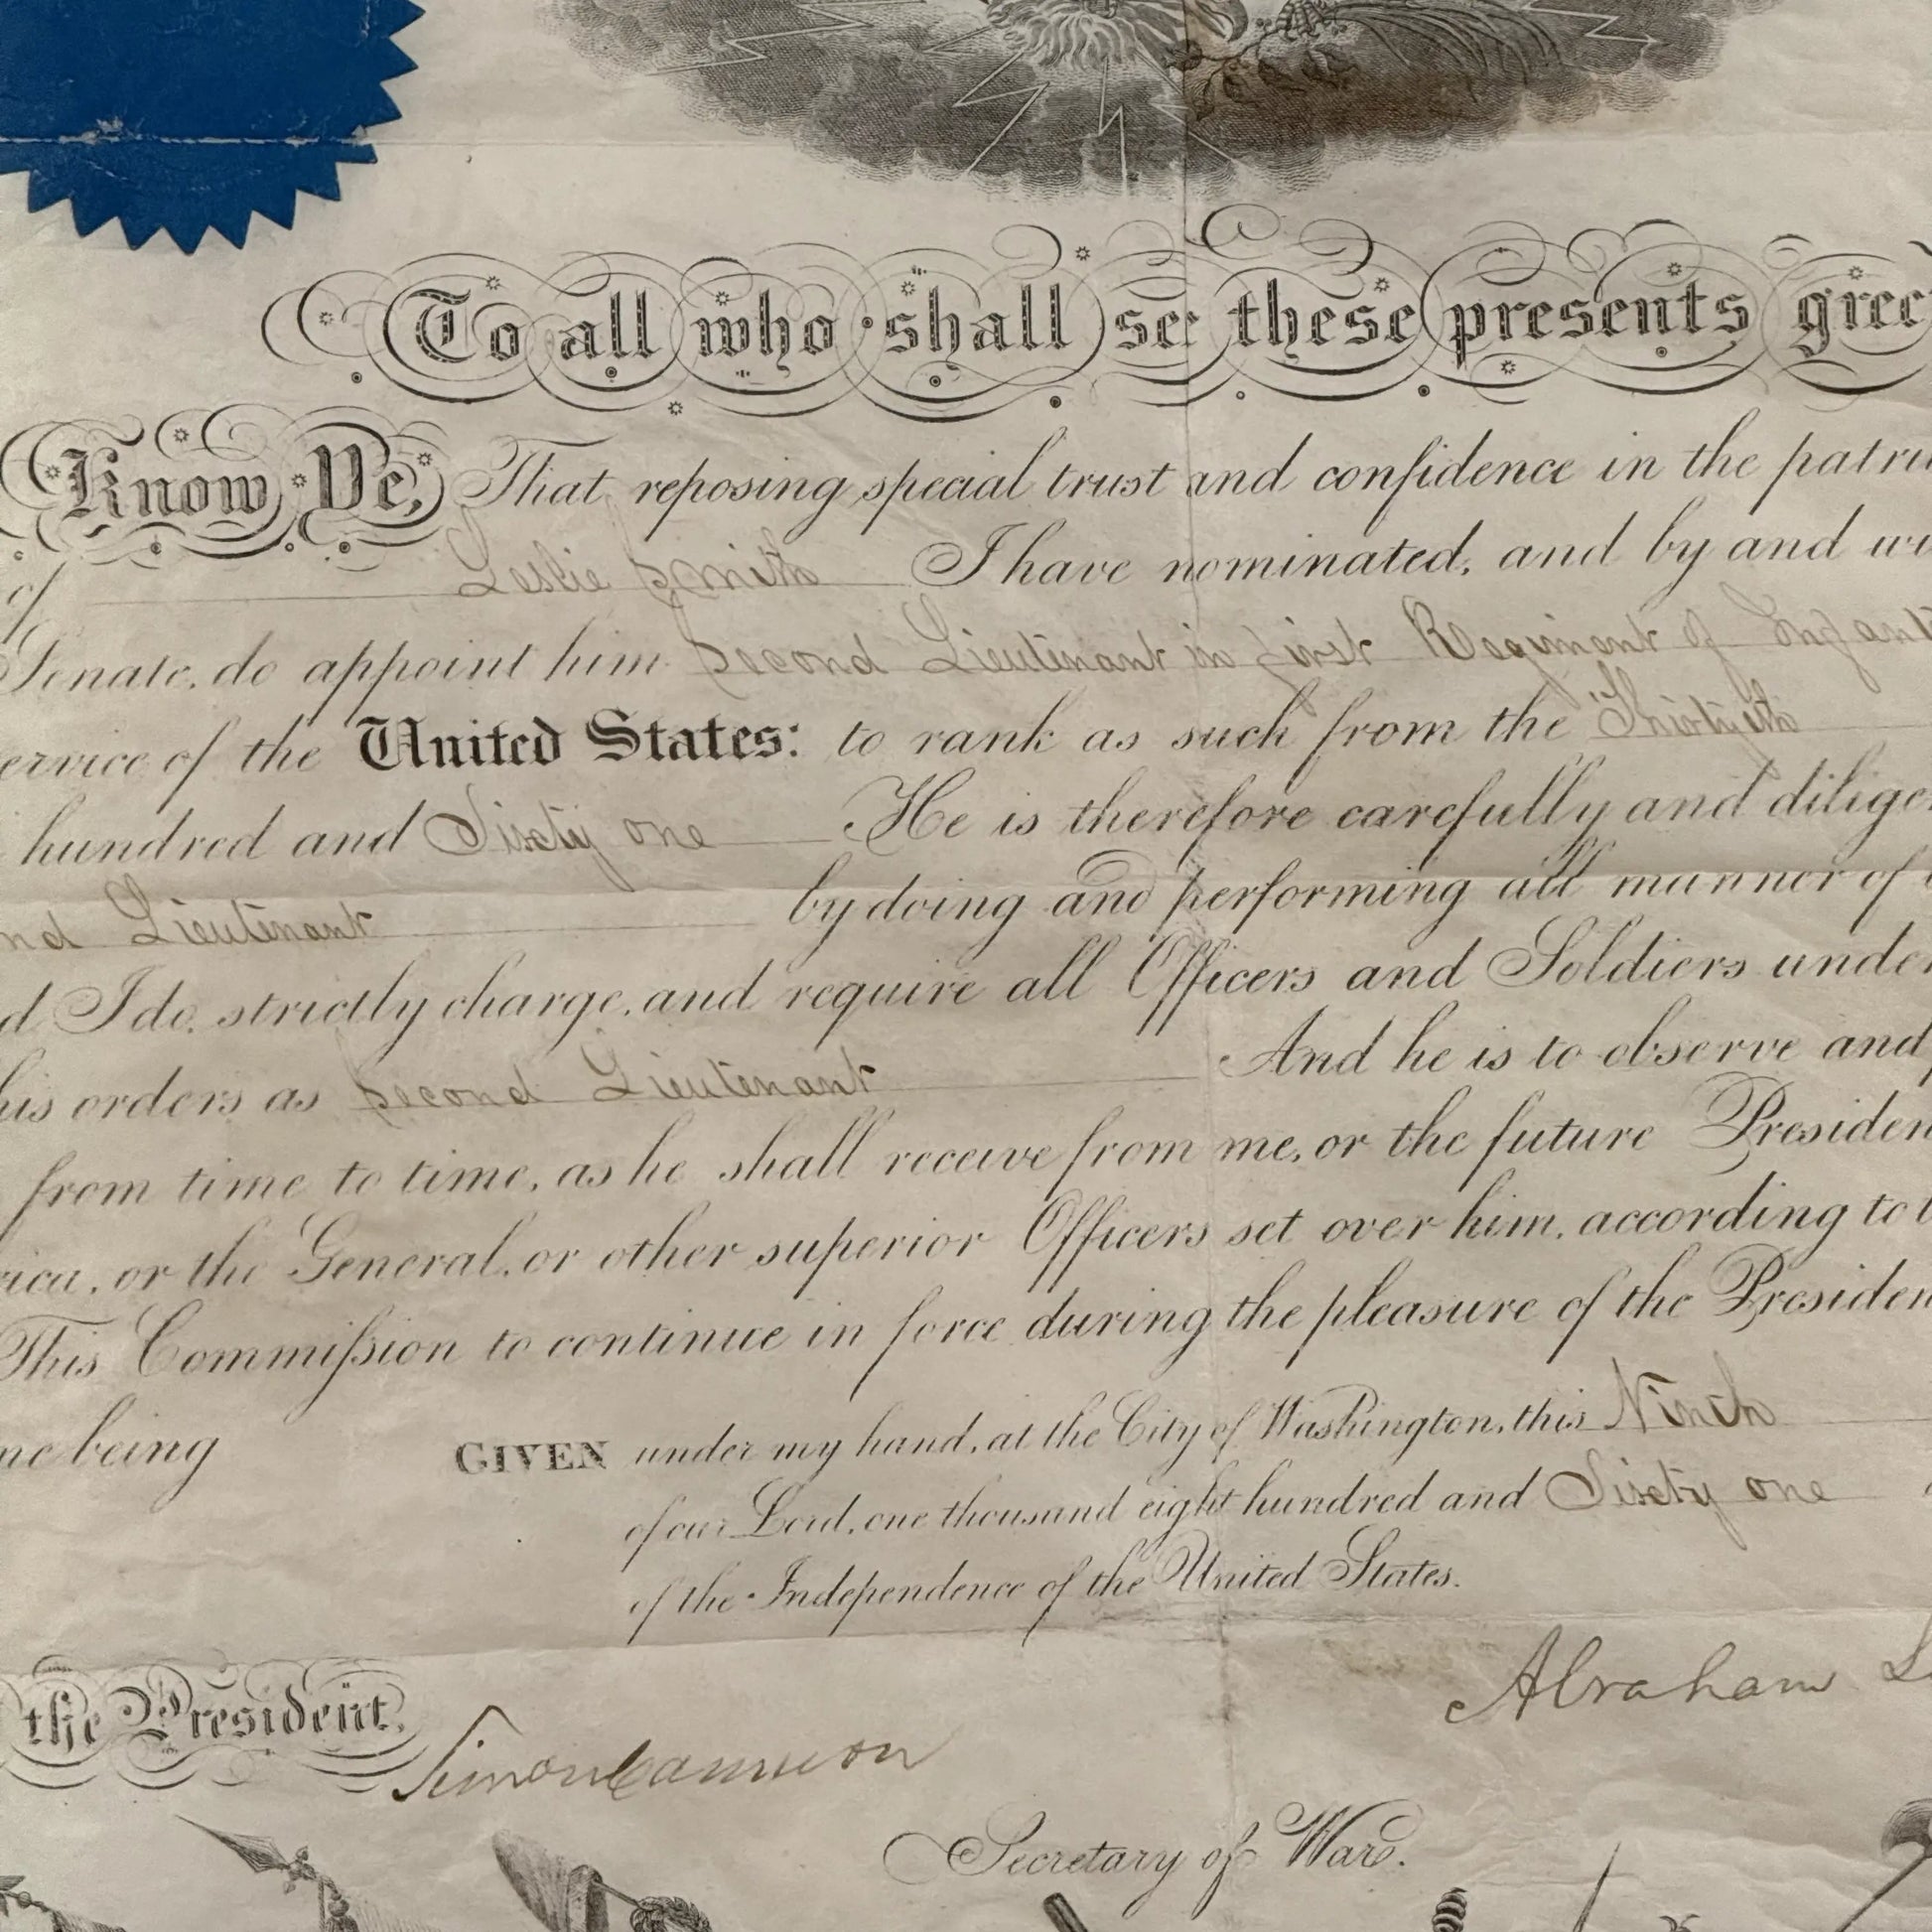 To all who shall see these presents greet
Know Ye, That reposing special trust and confidence in the patri
of Leslie Smith I have nominated, and by and wi
Senate, do appoint him Second Lieutenant in First Regiment of Infant
ervice of the United States: to rank as such from the Thirtyeth
hundred and Sixty one He is therefore carefully and dilige
nd Lieutenant by doing and performing all manner of
d I do, strictly charge, and require all Officers and Soldiers under
his orders as Second Lieutenant And he is to observe and
from time to time, as he shall receive from me, or the future Presiden
rica, or the General, or other superior Officers set over him, according to
This Commission to continue in force during the pleasure of the Presiden
me being GIVEN under my hand, at the City of Washington, this Ninth
of our Lord, one thousand eight hundred and Sixty one
of the Independence of the United States.
Abraham L
the President,
Simon Cameron
Secretary of War.